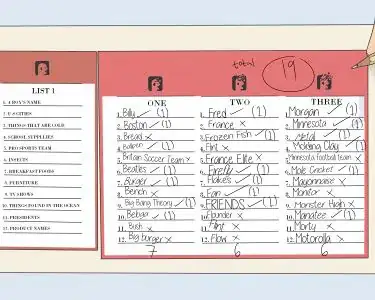 total 19
LIST 1
1. A BOY'S NAME
2. U.S CITIES
3. THINGS THAT ARE COLD
4. SCHOOL SUPPLIES
5. PRO SPORTS TEAM
6. INSECTS
7. BREAKFAST FOODS
8. FURNITURE
9. TV SHOWS
10. THINGS FOUND IN THE OCEAN
11. PRESIDENTS
12. PRODUCT NAMES
ONE
1. Billy ✓ (1)
2. Boston ✓ (1)
3. Bread ✗
4. Ballpen ✓ (1)
5. Britain Soccer Team ✗
6. Beatles ✓ (1)
7. Burger ✓ (1)
8. Bench ✓
9. Big Bang Theory ✓ (1)
10. Beluga ✓ (1)
11. Bush ✗
12. Big burger ✗
7
TWO
1. Fred ✓ (1)
2. France ✗
3. Frozen Fish ✓ (1)
4. Flint ✗
5. France Elite ✗
6. Firefly ✓ (1)
7. Flakes ✓ (1)
8. Fan ✓ (1)
9. FRIENDS ✓ (1)
10. Flounder ✗
11. Flint ✗
12. Flow ✗
6
THREE
1. Morgan ✓ (1)
2. Minnesota ✓ (1)
3. Metal ✓ (1)
4. Molding Clay ✓ (1)
5. Minnesota football Team ✗
6. Mole Cricket ✓ (1)
7. Mayonnaise ✗
8. Monitor ✗
9. Monster High ✗
10. Manatee ✓ (1)
11. Morty ✗
12. Motorolla ✗
6